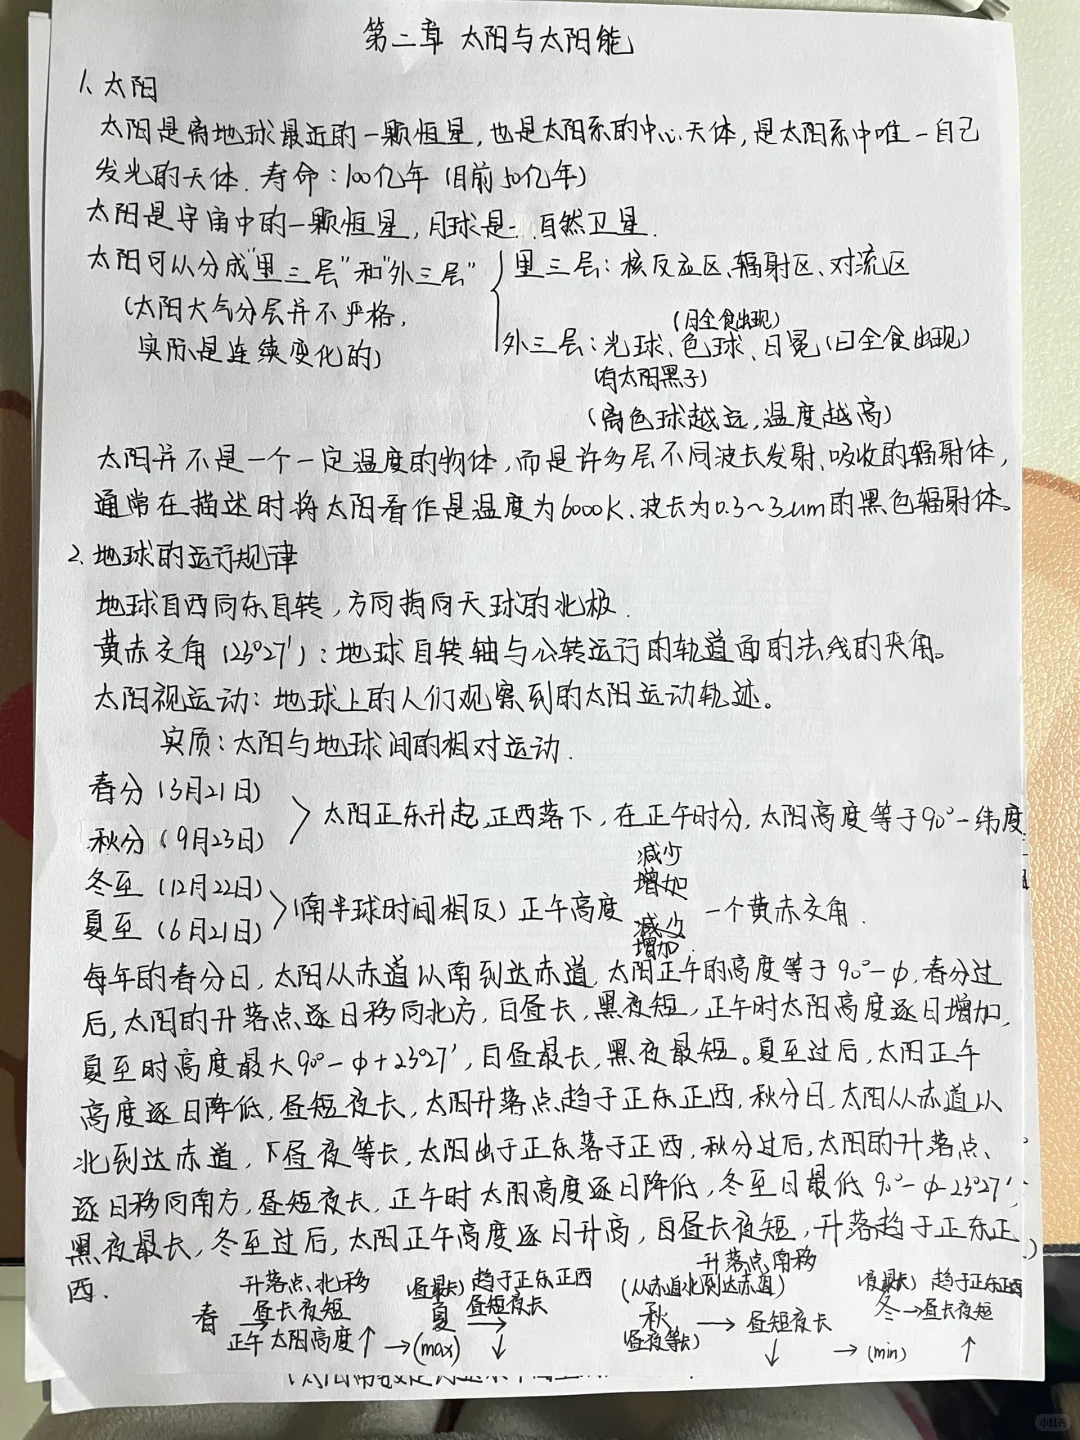 第二章 太阳与太阳能
1、太阳
太阳是离地球最近的一颗恒星，也是太阳系的中心天体，是太阳系中唯一自己
发光的天体．寿命：100亿年（目前50亿年）
太阳是宇宙中的一颗恒星，月球是 自然卫星．
太阳可从分成"里三层"和"外三层"
里三层：核反应区、辐射区、对流区
（太阳大气分层并不严格，
实际是连续变化的）
（日全食出现）
外三层：光球、色球、日冕（日全食出现）
（有太阳黑子）
（离色球越远，温度越高）
太阳并不是一个一定温度的物体，而是许多层不同波长发射、吸收的辐射体，
通常在描述时将太阳看作是温度为6000K、波长为0.3~3μm的黑色辐射体。
2、地球的运行规律
地球自西向东自转，方向指向天球的北极．
黄赤交角（23°27′）：地球自转轴与公转运行的轨道面的法线的夹角。
太阳视运动：地球上的人们观察到的太阳运动轨迹。
实质：太阳与地球间的相对运动．
春分（3月21日）
秋分（9月23日）
太阳正东升起，正西落下，在正午时分，太阳高度等于90°-纬度
冬至（12月22日）
夏至（6月21日）
（南半球时间相反）正午高度
减少
增加
减少
增加
一个黄赤交角．
每年的春分日，太阳从赤道以南到达赤道，太阳正午的高度等于90°-φ，春分过
后，太阳的升落点逐日移向北方，白昼长，黑夜短，正午时太阳高度逐日增加，
夏至时高度最大90°-φ+23°27′，白昼最长，黑夜最短。夏至过后，太阳正午
高度逐日降低，昼短夜长，太阳升落点趋于正东正西，秋分日，太阳从赤道以
北到达赤道，昼夜等长，太阳出于正东落于正西，秋分过后，太阳的升落点、
逐日移向南方，昼短夜长，正午时太阳高度逐日降低，冬至日最低90°-φ-23°27′，
黑夜最长，冬至过后，太阳正午高度逐日升高，白昼长夜短，升落趋于正东正
西．
春
升落点北移
→
昼长夜短
正午太阳高度↑
→
（昼最长）
夏
（max）
趋于正东正西
昼短夜长
→
↓
（从赤道北到达赤道）
秋
（昼夜等长）
升落点南移
→
昼短夜长
↓
→
（夜最长）
冬
（min）
趋于正东正西
→昼长夜短
↑
小红书